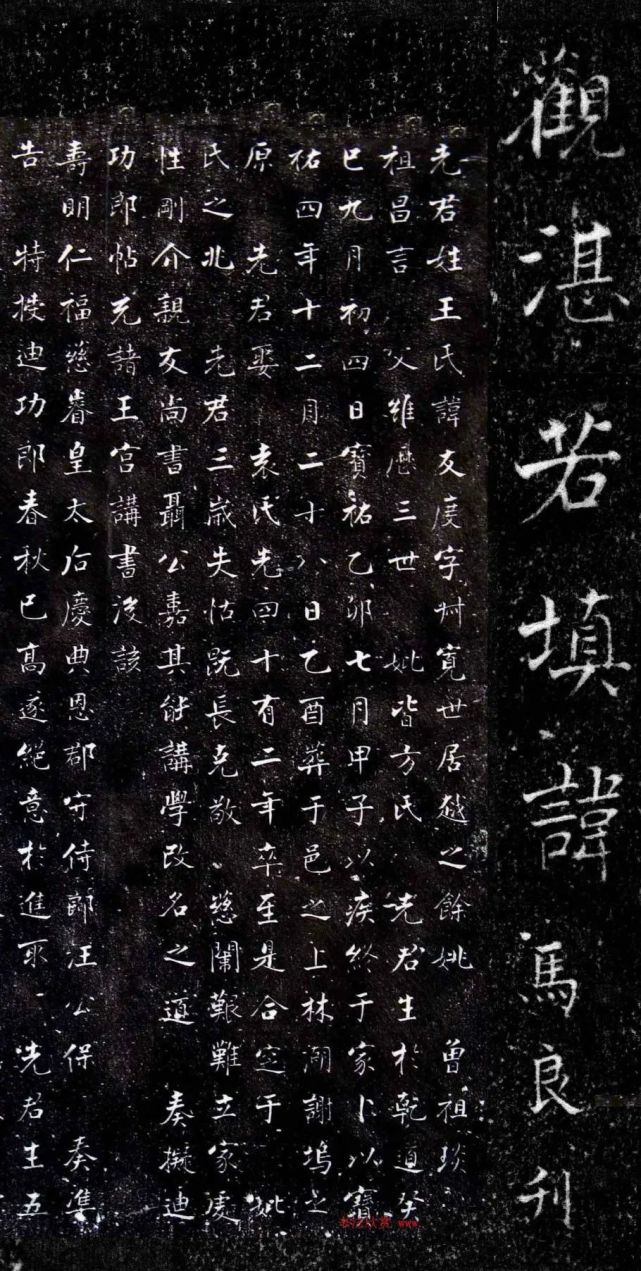 觀湛若填諱馬良刊
先君姓王氏諱友度字叔寬世居越之餘姚 曾祖琰
祖昌言 父維歷三世 妣皆方氏 先君生於乾道癸
巳九月初四日寶祐乙卯七月甲子以疾終于家卜以寶
祐四年十二月二十八日乙酉葬于邑之上林湖謝塢之
原 先君娶 袁氏先四十有二年卒至是合窆于 妣
氏之兆 先君三歲失怙既長克敬 慈闈艱難立家處
性剛介親友尚書聶公嘉其能講學改名之道 奏擬迪
功郎帖充諸王宮講書後該
壽明仁福慈睿皇太后慶典恩郡守侍郎汪公保 奏準
告 特授迪功郎春秋已高遂絕意於進取 先君生五
www.